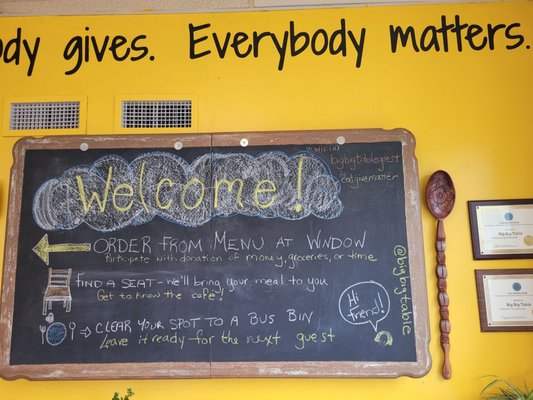 ody gives. Everybody matters.
Welcome!
bigbgtablegiest
@eatgivematter
ORDER FROM MENU AT WNDOW
Participate with donation of money, groceries, or time
FIND A SEAT - we'll bring your meal to you
Get to know the cafe!
CLEAR YOUR SPOT TO A BUS BIN
Leave it ready for the next guest
Hi
friend!
@bigbgtable
Big Big Table
Big Big Table